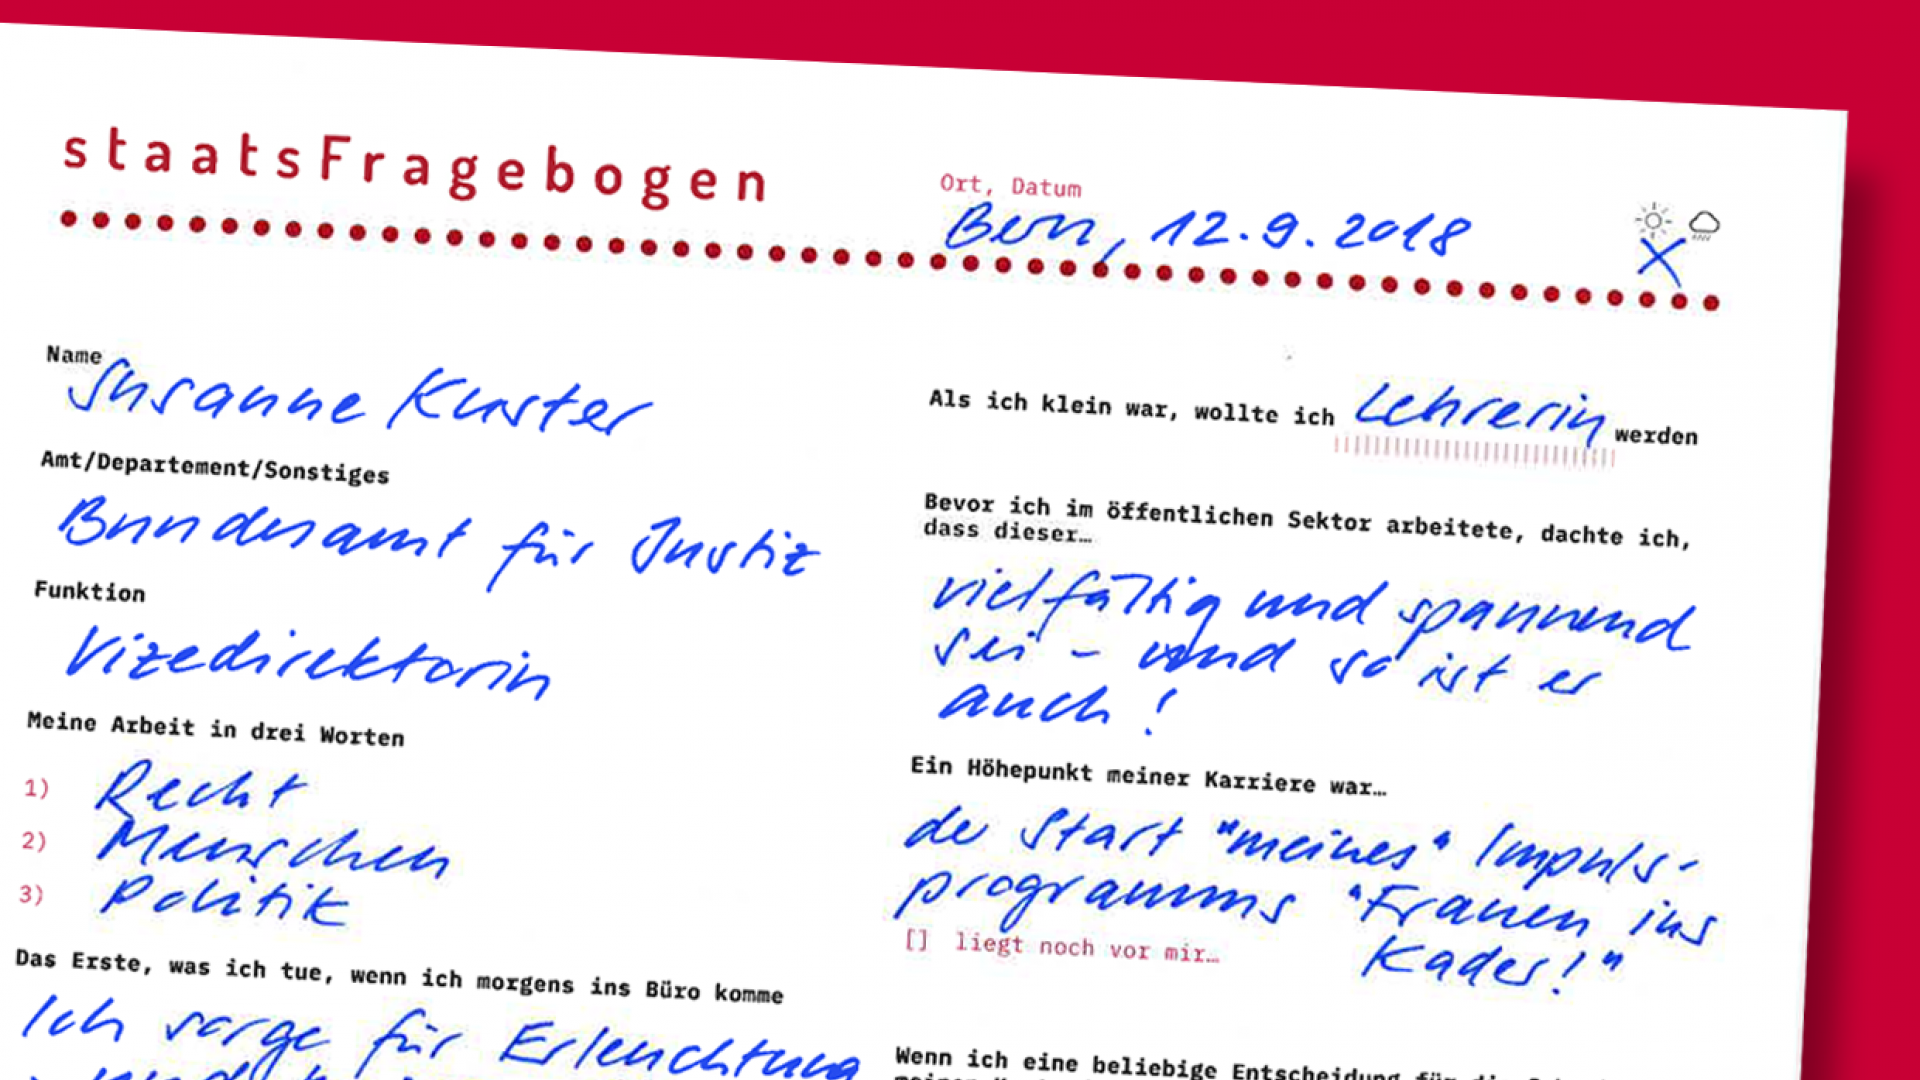 staatsFragebogen
Ort, Datum
Bern, 12.9.2018
Name
Susanne Kuster
Amt/Departement/Sonstiges
Bundesamt für Justiz
Funktion
Vizedirektorin
Meine Arbeit in drei Worten
1) Recht
2) Menschen
3) Politik
Das Erste, was ich tue, wenn ich morgens ins Büro komme
Ich sorge für Erleuchtung
Als ich klein war, wollte ich Lehrerin werden
Bevor ich im öffentlichen Sektor arbeitete, dachte ich,
dass dieser…
vielfältig und spannend
sei - und so ist er
auch!
Ein Höhepunkt meiner Karriere war…
der Start "meines" Impuls-
programms "Frauen ins
Kader!"
[] liegt noch vor mir…
Wenn ich eine beliebige Entscheidung für die